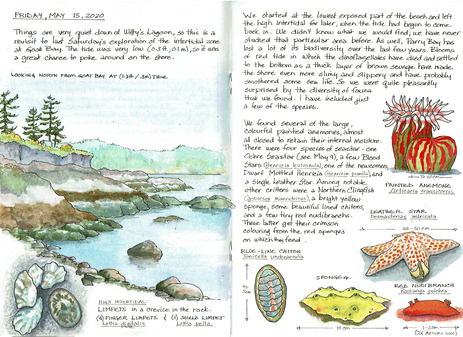 FRIDAY, MAY 15, 2020
Things are very quiet down at Witty's Lagoon, so this is a
revisit to last Saturday's exploration of the intertidal zone
at Goat Bay. The tide was very low (0.5ft, 0.1m), so it was
a great chance to poke around on the shore.
LOOKING NORTH FROM GOAT BAY AT
HIGH INTERTIDAL:
LIMPETS in a crevice in the rock.
FINGER LIMPETS & SHIELD LIMPET
Lottia digitalis Lottia pelta
We started at the lowest exposed part of the beach and left
the high intertidal for later, when the tide had begun to come
back in. We didn't know what we would find; we have never
studied that particular area before. As well, Parry Bay has
lost a lot of its biodiversity over the last few years. Blooms
of red tide in which the dinoflagellates have died and settled
to the bottom as a thick layer of brown sludge have made
the shore even more slimy and slippery and have probably
smothered some sea life. So we were quite pleasantly
surprised by the diversity of fauna
that we found. I have included just
a few of the species.
We found several of the large,
colourful painted anemones, almost
all closed to retain their internal moisture.
There were four species of seastar - one
Ochre Seastar (see May 9), a few Blood
Stars (Henricia leviuscula), one of the newcomers,
Dwarf Mottled Henricia (Henricia pumila), and
a single Leather Star. Among notable
other critters were a Northern Clingfish
(Gobiesox maeandricus), a bright yellow
sponge, some beautiful lined chitons,
and a few tiny red nudibranchs.
These latter get their crimson
colouring from the red sponges
on which they feed.
PAINTED ANEMONE
Urticina crassicornis
LEATHER STAR
Dermasterias imbricata
BLUE-LINE CHITON
Tonicella undocaerulea
SPONGE
10 cm
RED NUDIBRANCH
Rostanga pulchra
1-2cm
(2X ACTUAL SIZE)